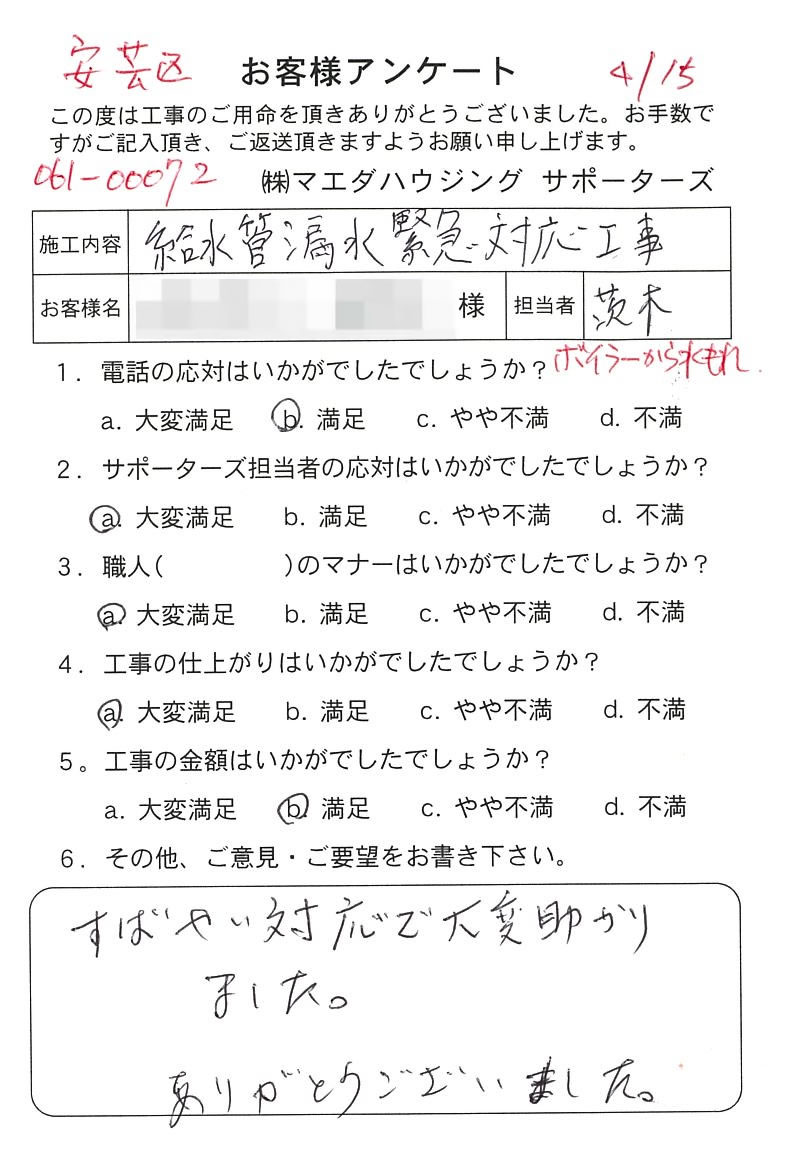 安芸区 お客様アンケート 4/15
この度は工事のご用命を頂きありがとうございました。お手数で
すがご記入頂き、ご返送頂きますようお願い申し上げます。
061-00072 ㈱マエダハウジング サポーターズ
施工内容 給水管漏水緊急対応工事
お客様名 様 担当者 茨木
1. 電話の応対はいかがでしたでしょうか? ボイラーから水もれ
a. 大変満足 b. 満足 c. やや不満 d. 不満
2. サポーターズ担当者の応対はいかがでしたでしょうか?
a. 大変満足 b. 満足 c. やや不満 d. 不満
3. 職人( )のマナーはいかがでしたでしょうか?
a. 大変満足 b. 満足 c. やや不満 d. 不満
4. 工事の仕上がりはいかがでしたでしょうか?
a. 大変満足 b. 満足 c. やや不満 d. 不満
5。工事の金額はいかがでしたでしょうか?
a. 大変満足 b. 満足 c. やや不満 d. 不満
6. その他、ご意見・ご要望をお書き下さい。
すばやい対応で大変助かり
ました。
ありがとうございました。